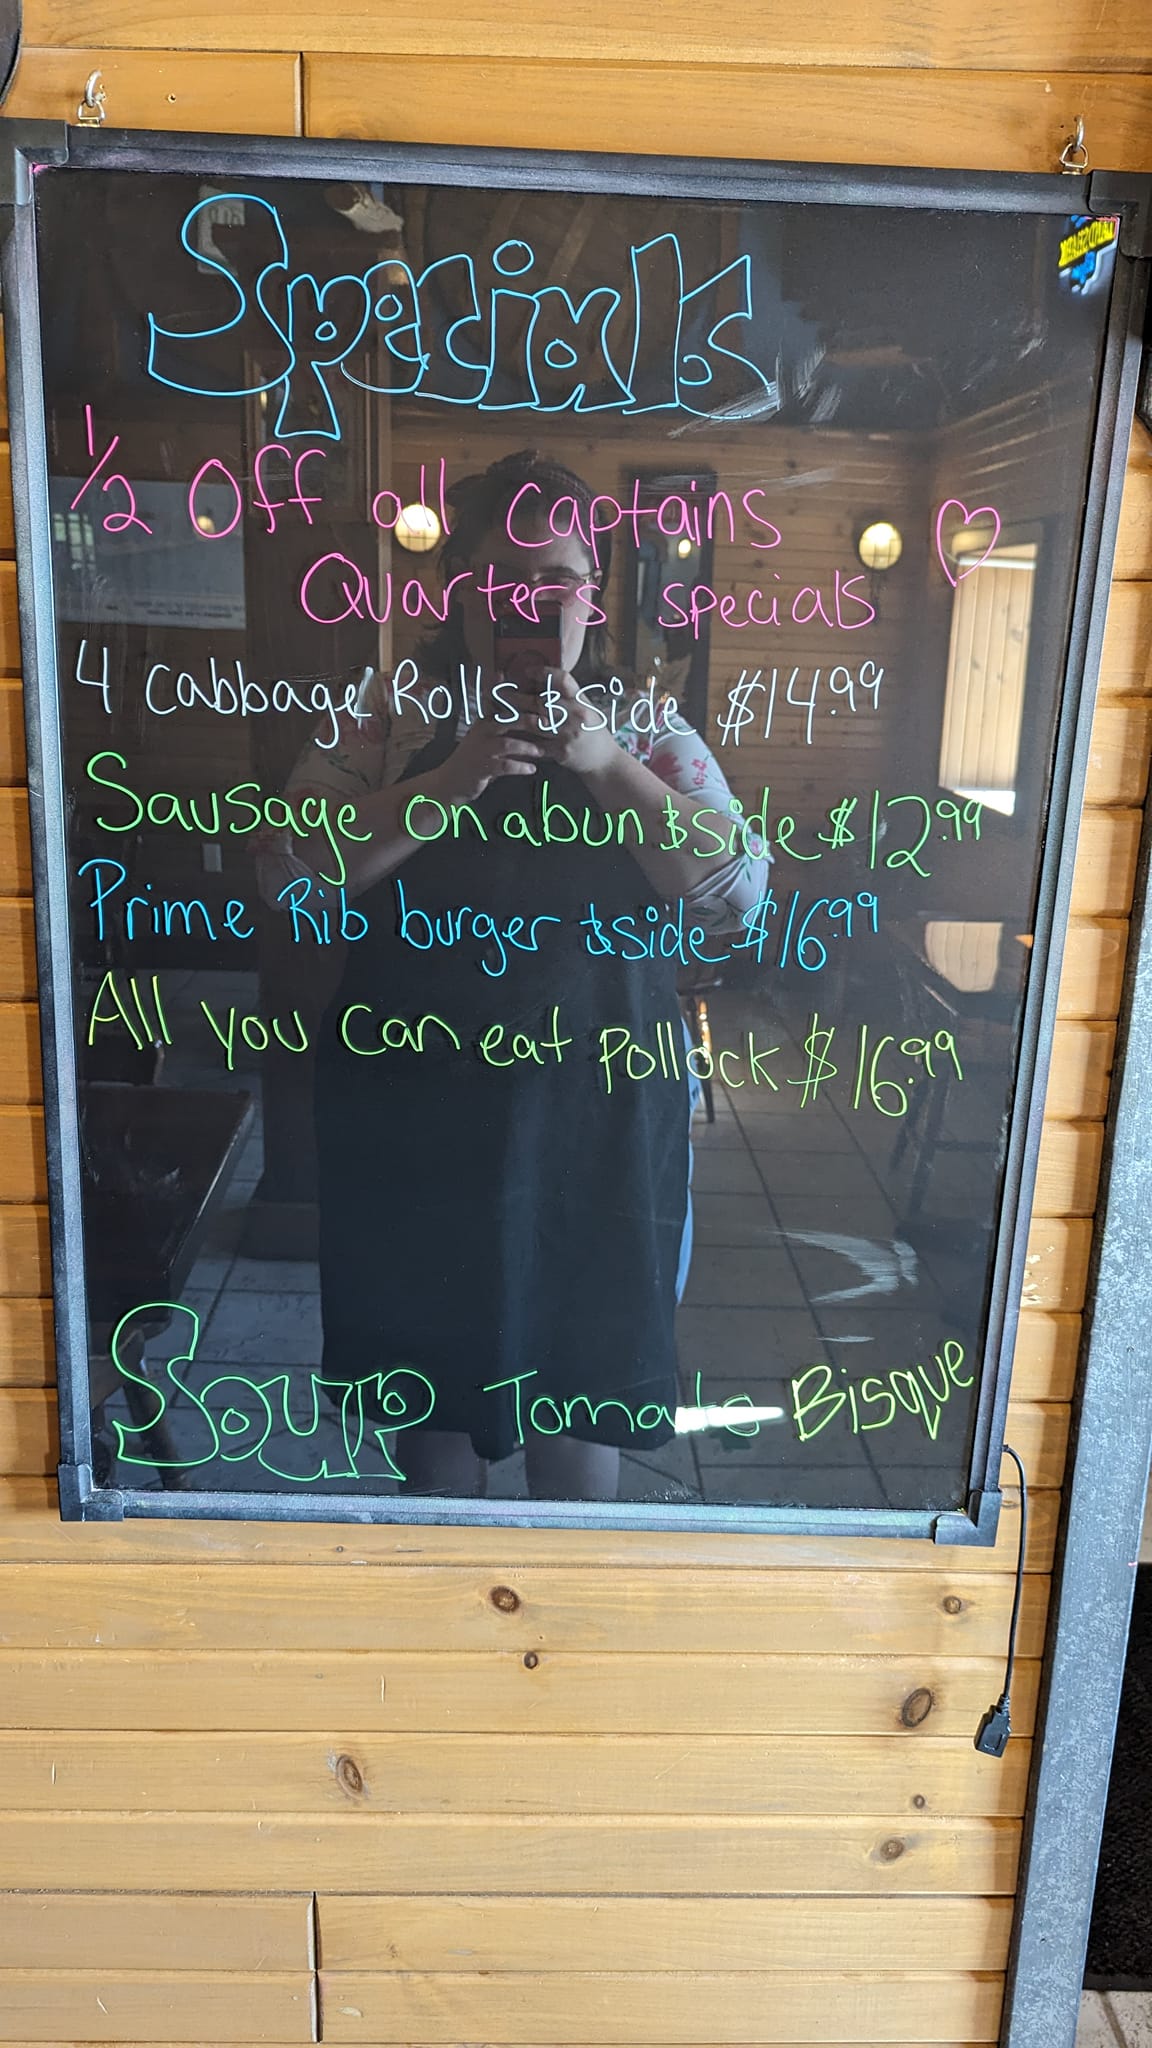 Specials
1/2 Off all Captains
Quarters specials
4 Cabbage Rolls & side $14.99
Sausage on a bun & side $12.99
Prime Rib burger & side $16.99
All you can eat Pollock $16.99
Soup Tomato Bisque